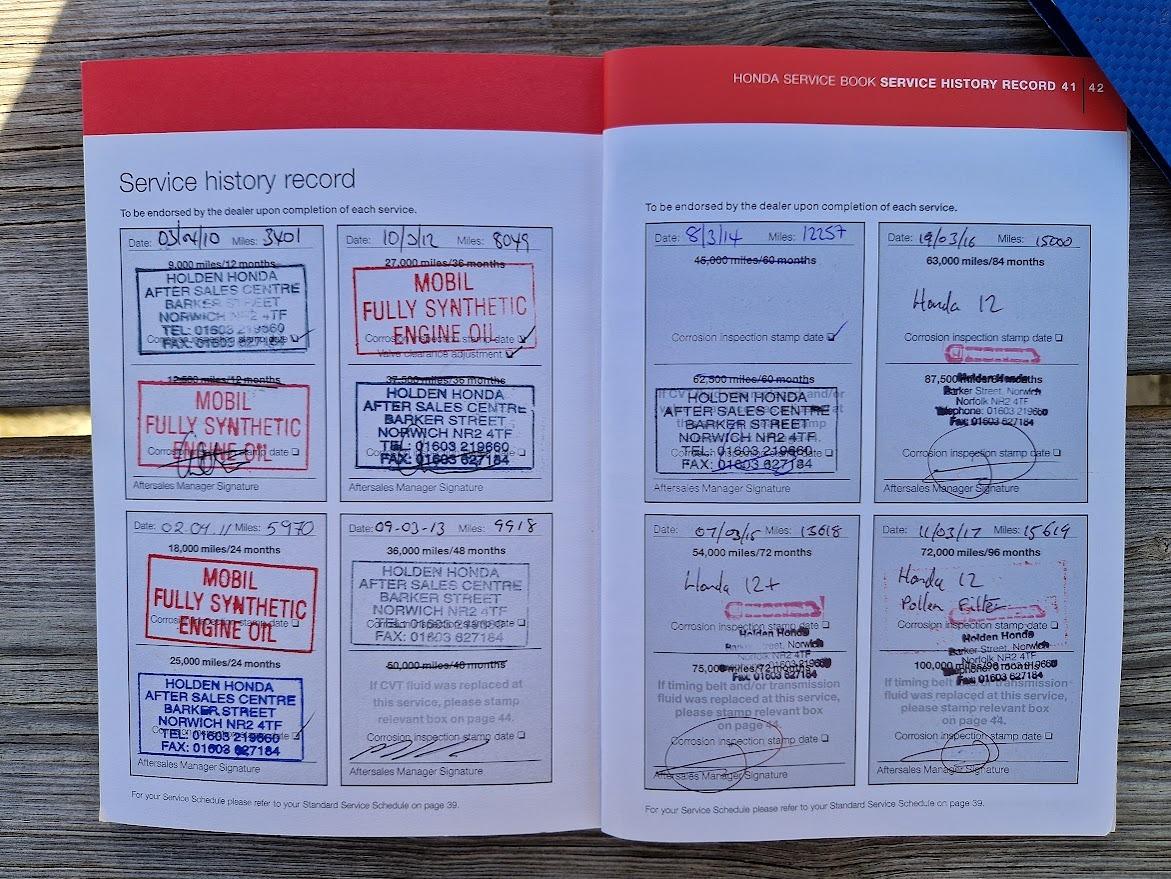 HONDA SERVICE BOOK SERVICE HISTORY RECORD 41 42
Service history record
To be endorsed by the dealer upon completion of each service.
Date: 03/04/10 Miles: 3401
9,000 miles/12 months
HOLDEN HONDA
AFTER SALES CENTRE
BARKER STREET
NORWICH NR2 4TF
TEL: 01603 219660
FAX: 01603 627184
Corrosion inspection stamp date
12,500 miles/12 months
MOBIL
FULLY SYNTHETIC
ENGINE OIL
Corrosion inspection stamp date
Aftersales Manager Signature
Date: 10/3/12 Miles: 8049
27,000 miles/36 months
MOBIL
FULLY SYNTHETIC
ENGINE OIL
Corrosion inspection stamp date
Valve clearance adjustment
37,500 miles/36 months
HOLDEN HONDA
AFTER SALES CENTRE
BARKER STREET
NORWICH NR2 4TF
TEL: 01603 219660
FAX: 01603 627184
Aftersales Manager Signature
Date: 02.04.11 Miles: 5970
18,000 miles/24 months
MOBIL
FULLY SYNTHETIC
ENGINE OIL
Corrosion inspection stamp date
25,000 miles/24 months
HOLDEN HONDA
AFTER SALES CENTRE
BARKER STREET
NORWICH NR2 4TF
TEL: 01603 219660
FAX: 01603 627184
Aftersales Manager Signature
Date: 09-03-13 Miles: 9918
36,000 miles/48 months
HOLDEN HONDA
AFTER SALES CENTRE
BARKER STREET
NORWICH NR2 4TF
TEL: 01603 219660
FAX: 01603 627184
50,000 miles/48 months
If CVT fluid was replaced at
this service, please stamp
relevant box on page 44.
Corrosion inspection stamp date
Aftersales Manager Signature
For your Service Schedule please refer to your Standard Service Schedule on page 39.
To be endorsed by the dealer upon completion of each service.
Date: 8/3/14 Miles: 12257
45,000 miles/60 months
Corrosion inspection stamp date
62,500 miles/60 months
HOLDEN HONDA
AFTER SALES CENTRE
BARKER STREET
NORWICH NR2 4TF
TEL: 01603 219660
FAX: 01603 627184
Aftersales Manager Signature
Date: 19/03/16 Miles: 15000
63,000 miles/84 months
Honda 12
Corrosion inspection stamp date
87,500 miles/84 months
Holden Honda
Barker Street, Norwich
Norfolk NR2 4TF
Telephone: 01603 219660
Fax: 01603 627184
Corrosion inspection stamp date
Aftersales Manager Signature
Date: 07/03/15 Miles: 13618
54,000 miles/72 months
Honda 12+
Corrosion inspection stamp date
Holden Honda
Barker Street, Norwich
Norfolk NR2 4TF
75,000 miles/72 months
Fax: 01603 627184
If timing belt and/or transmission
fluid was replaced at this service,
please stamp relevant box
on page 44.
Corrosion inspection stamp date
Aftersales Manager Signature
Date: 11/03/17 Miles: 15619
72,000 miles/96 months
Honda 12
Pollen Filter
Corrosion inspection stamp date
Holden Honda
Barker Street, Norwich
Norfolk NR2 4TF
100,000 miles/96 months
Fax: 01603 627184
If timing belt and/or transmission
fluid was replaced at this service,
please stamp relevant box
on page 44.
Corrosion inspection stamp date
Aftersales Manager Signature
For your Service Schedule please refer to your Standard Service Schedule on page 39.